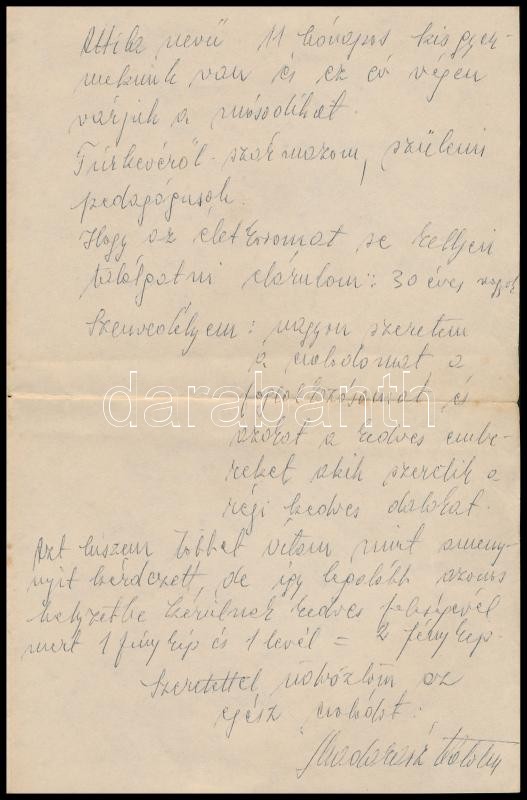 Attila nevű 11 hónapos kisgyer-
mekünk van és ez év végén
várjuk a másodikat.
Túrkevéről származom, szüleim
pedagógusok.
Hogy az életkoromat se kelljen
találgatni elárulom: 30 éves vagyok
Szenvedélyem: nagyon szeretem
a családomat, a
foglalkozásomat és
azokat a kedves embe-
reket akik szeretik a
régi kedves dalokat.
darabanth.com
Azt hiszem többet írtam mint ameny-
nyit kérdezett, de így legalább azonos
helyzetbe kerülnek kedves feleségével
mert 1 fénykép és 1 levél = 2 fénykép.
Szeretettel üdvözlöm az
egész családot:
Madarász Katalin